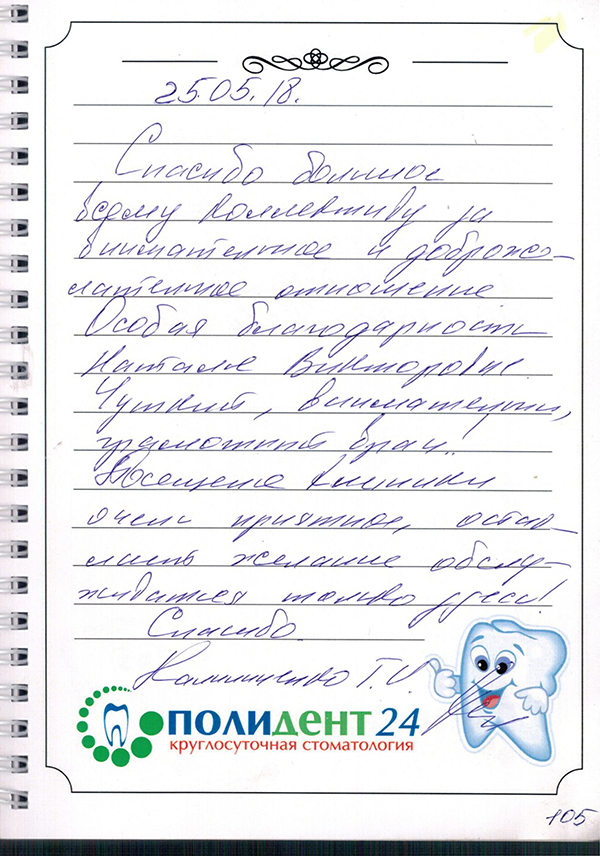 25.05.18.
Спасибо большое
всему коллективу за
внимательное и доброже-
лательное отношение
Особая благодарность
Наталье Викторовне
Чуткий, внимательный,
грамотный врач!
Посещение клиники
очень приятное, оста-
лось желание обслу-
живаться только здесь!
Спасибо
Калиниченко Т.И.
ПОЛИДЕНТ 24
круглосуточная стоматология
105